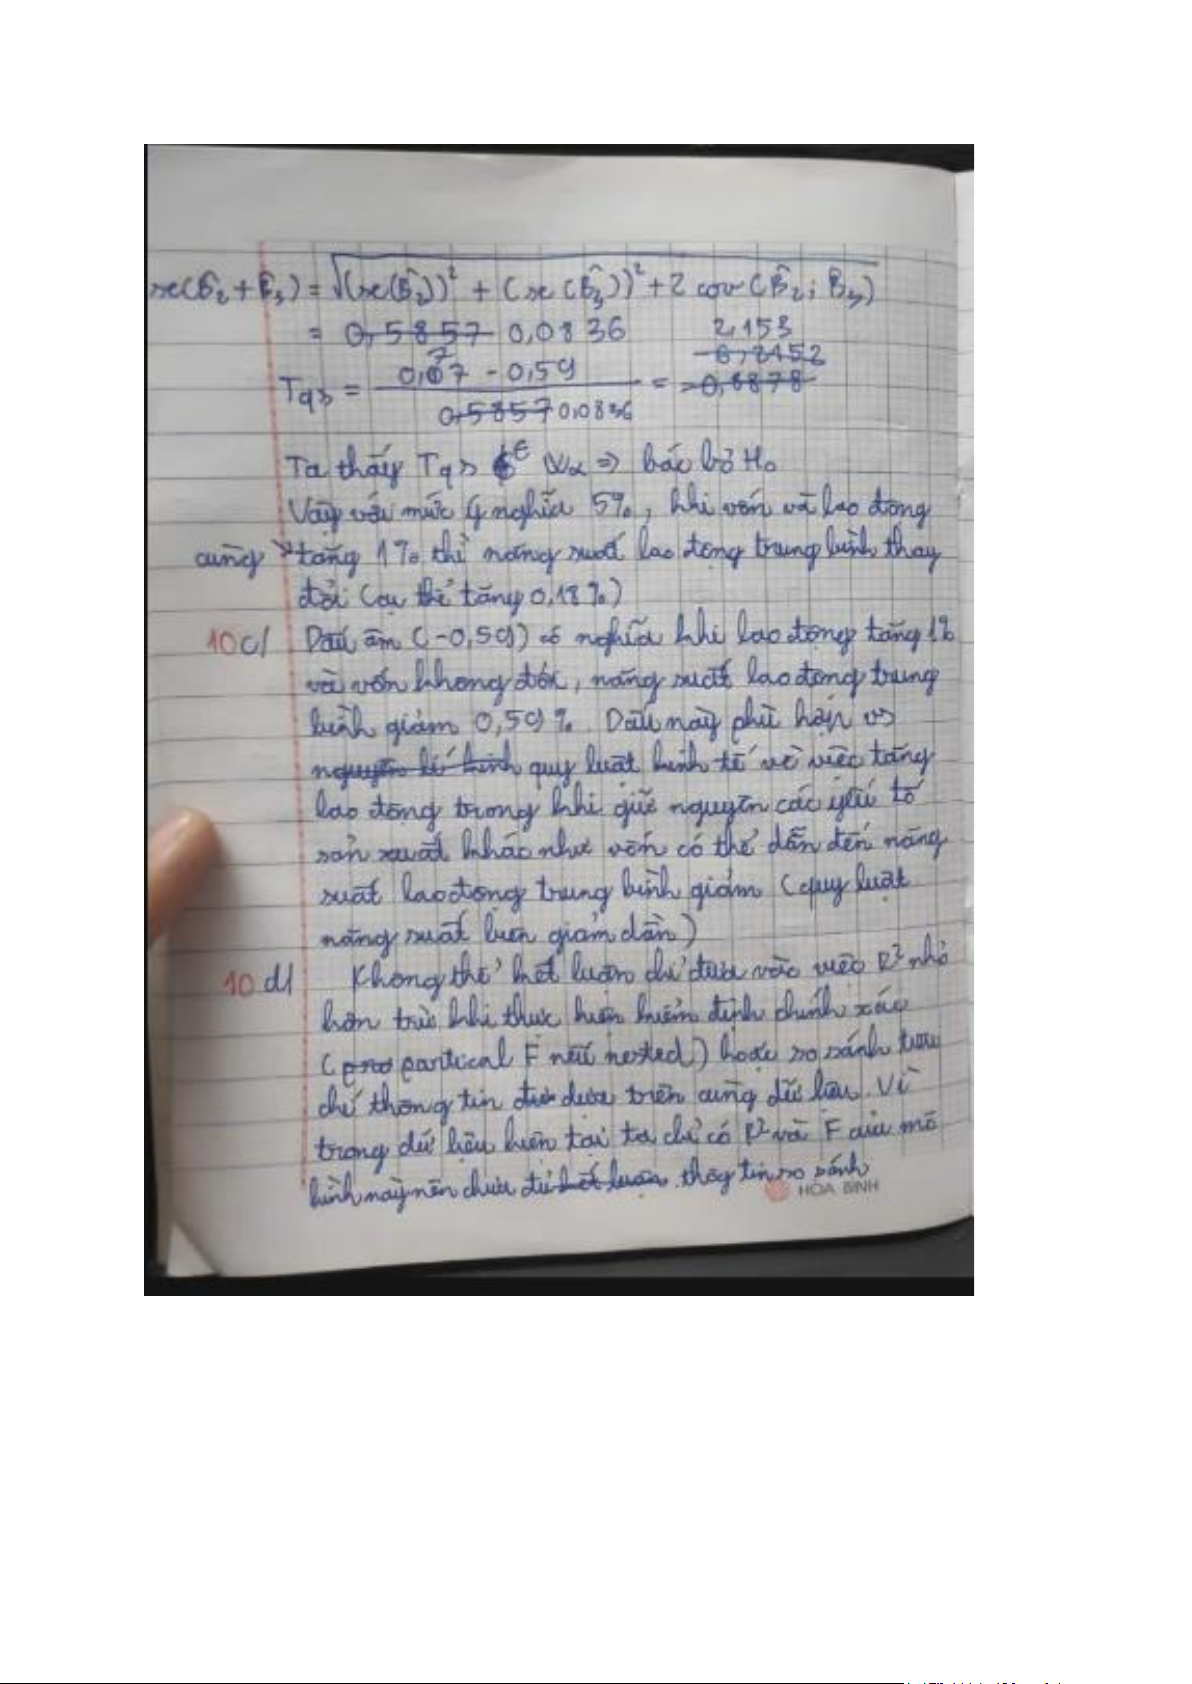 se(β̂2 + β̂3) = √(se(β̂2))² + (se(β̂3))² + 2 cov(β̂2; β̂3)
= 0,5857 0,0836
Tqs = 0,77 - 0,59 / 0,5857 0,0836 = 2,153 -0,2152 -0,6878
Ta thấy Tqs ∈ Wα => bác bỏ H₀
Vậy với mức ý nghĩa 5%, khi vốn và lao động
cùng tăng 1% thì năng suất lao động trung bình thay
đổi (cụ thể tăng 0,18%)
10c/ Dấu âm (-0,59) có nghĩa khi lao động tăng 1%
và vốn không đổi, năng suất lao động trung
bình giảm 0,59%. Dấu này phù hợp vs
nguyên lí kinh quy luật kinh tế về việc tăng
lao động trong khi giữ nguyên các yếu tố
sản xuất khác như vốn có thể dẫn đến năng
suất lao động trung bình giảm (quy luật
năng suất biên giảm dần)
10d/ Không thể kết luận chỉ dựa vào việc R² nhỏ
hơn trừ khi thực hiện kiểm định chính xác
(partical F nếu nested) hoặc so sánh tiêu
chí thông tin dựa trên cùng dữ liệu. Vì
trong dữ liệu hiện tại ta chỉ có R² và F của mô
hình này nên chưa đủ kết luận. thông tin so sánh
HÒA BÌNH